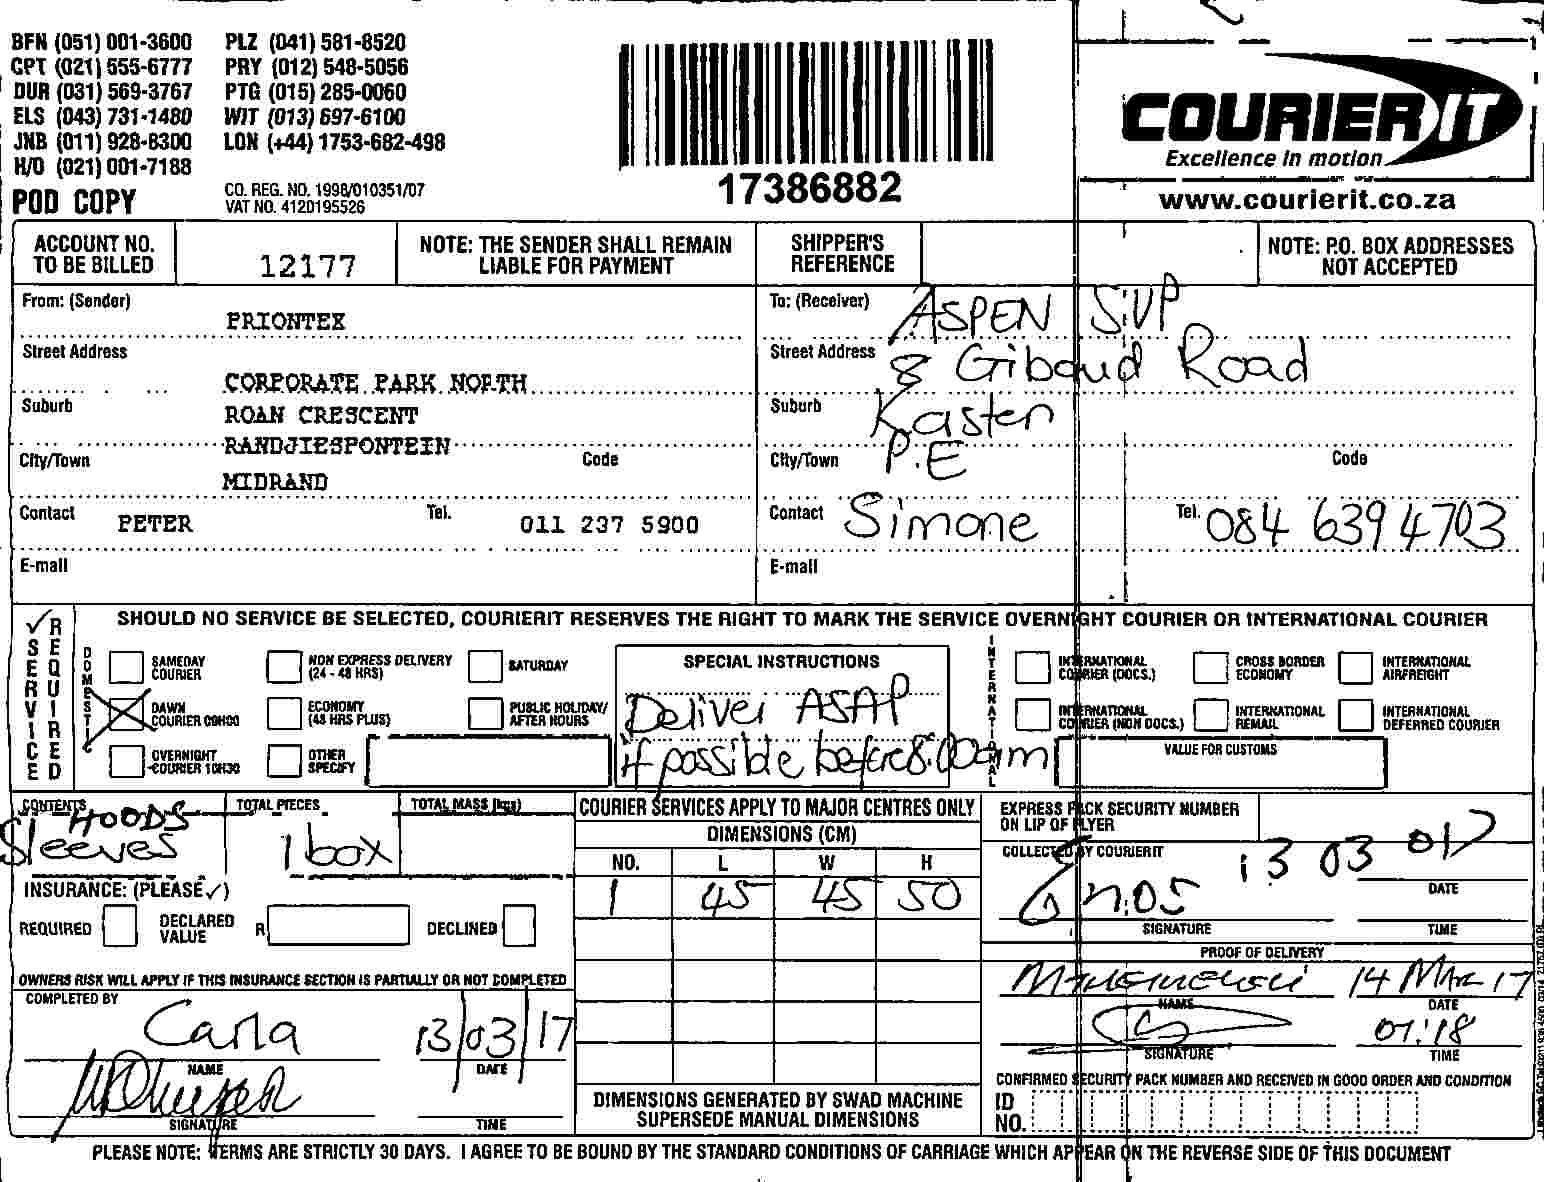 BFN (051) 001-3600 PLZ (041) 581-8520
CPT (021) 555-6777 PRY (012) 548-5056
DUR (031) 569-3767 PTG (015) 285-0060
ELS (043) 731-1480 WIT (013) 697-6100
JNB (011) 928-8300 LON (+44) 1753-682-498
H/O (021) 001-7188
POD COPY
CO. REG. NO. 1998/010351/07
VAT NO. 4120195526
17386882
COURIER IT
Excellence in motion
www.courierit.co.za
ACCOUNT NO. TO BE BILLED 12177
NOTE: THE SENDER SHALL REMAIN LIABLE FOR PAYMENT
SHIPPER'S REFERENCE
NOTE: P.O. BOX ADDRESSES NOT ACCEPTED
From: (Sender) PRIONTEX
Street Address CORPORATE PARK NORTH
Suburb ROAN CRESCENT
RANDJIESPONTEIN
City/Town MIDRAND Code
Contact PETER Tel. 011 237 5900
E-mail
To: (Receiver) ASPEN SVP
Street Address 8 Gibaud Road
Suburb Kasten
City/Town P.E Code
Contact Simone Tel. 084 639 4703
E-mail
✓ SERVICE REQUIRED
SHOULD NO SERVICE BE SELECTED, COURIERIT RESERVES THE RIGHT TO MARK THE SERVICE OVERNIGHT COURIER OR INTERNATIONAL COURIER
DOMESTIC
SAMEDAY COURIER
NON EXPRESS DELIVERY (24 - 48 HRS)
SATURDAY
DAWN COURIER 09H00
ECONOMY (48 HRS PLUS)
PUBLIC HOLIDAY/ AFTER HOURS
OVERNIGHT COURIER 10H30
OTHER SPECIFY
SPECIAL INSTRUCTIONS
Deliver ASAP
if possible before 8:00am
INTERNATIONAL
INTERNATIONAL COURIER (DOCS.)
CROSS BORDER ECONOMY
INTERNATIONAL AIRFREIGHT
INTERNATIONAL COURIER (NON DOCS.)
INTERNATIONAL REMAIL
INTERNATIONAL DEFERRED COURIER
VALUE FOR CUSTOMS
CONTENTS HOODS
Sleeves
TOTAL PIECES
1 box
TOTAL MASS (kgs)
INSURANCE: (PLEASE ✓)
REQUIRED DECLARED VALUE R DECLINED
OWNERS RISK WILL APPLY IF THIS INSURANCE SECTION IS PARTIALLY OR NOT COMPLETED
COMPLETED BY
Carla 13/03/17
NAME DATE
SIGNATURE TIME
COURIER SERVICES APPLY TO MAJOR CENTRES ONLY
DIMENSIONS (CM)
NO. L W H
1 45 45 50
DIMENSIONS GENERATED BY SWAD MACHINE SUPERSEDE MANUAL DIMENSIONS
EXPRESS PACK SECURITY NUMBER ON LIP OF FLYER
COLLECTED BY COURIERIT
13 03 017
DATE
SIGNATURE TIME
PROOF OF DELIVERY
14 MAR 17
NAME DATE
07:18
SIGNATURE TIME
CONFIRMED SECURITY PACK NUMBER AND RECEIVED IN GOOD ORDER AND CONDITION
ID NO.
PLEASE NOTE: TERMS ARE STRICTLY 30 DAYS. I AGREE TO BE BOUND BY THE STANDARD CONDITIONS OF CARRIAGE WHICH APPEAR ON THE REVERSE SIDE OF THIS DOCUMENT